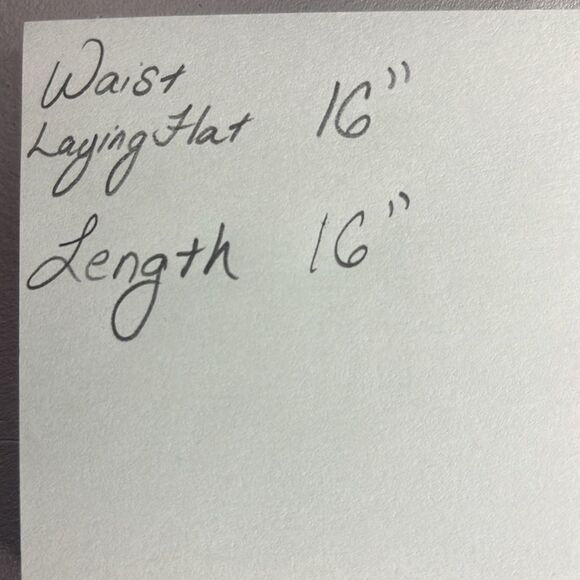 Waist
Laying Flat 16"
Length 16"